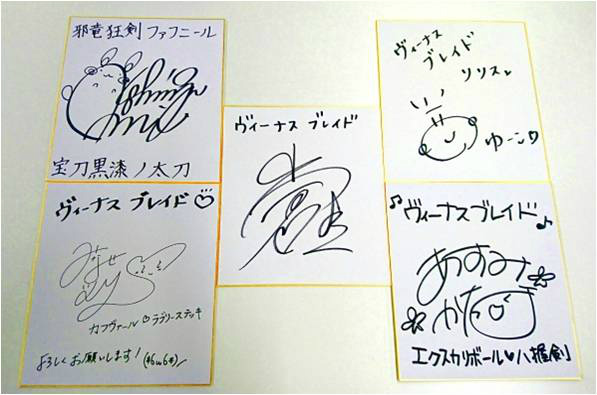 邪竜狂剣 ファフニール
宝刀黒漆ノ太刀
ヴィーナス ブレイド♡
みなせ
カプヴァール♡ラブリーステッキ
よろしくお願いします!
ヴィーナス ブレイド
ヴィーナス
ブレイド
ソソス
ゆーこ♡
♪ヴィーナスブレイド♪
あすみ
かな
エクスカリボール♡八握剣